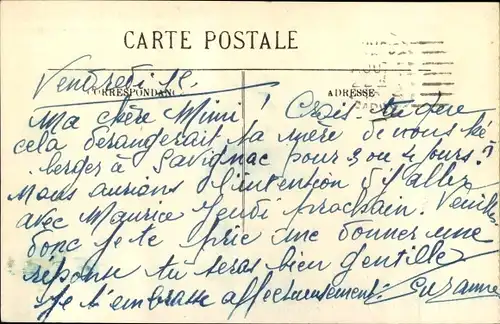 CARTE POSTALE
Vendredi 12
CORRESPONDANCE
ADRESSE
Ma chère Mimi ! Crois-tu que
cela dérangerait ta mère de nous hé
berger à Savignac pour 3 ou 4 jours ?
Nous aurions l'intention d'y aller
avec Maurice Jeudi prochain. Veuilles
donc je te prie me donner une
réponse tu seras bien gentille
Je t'embrasse affectueusement. Suzanne